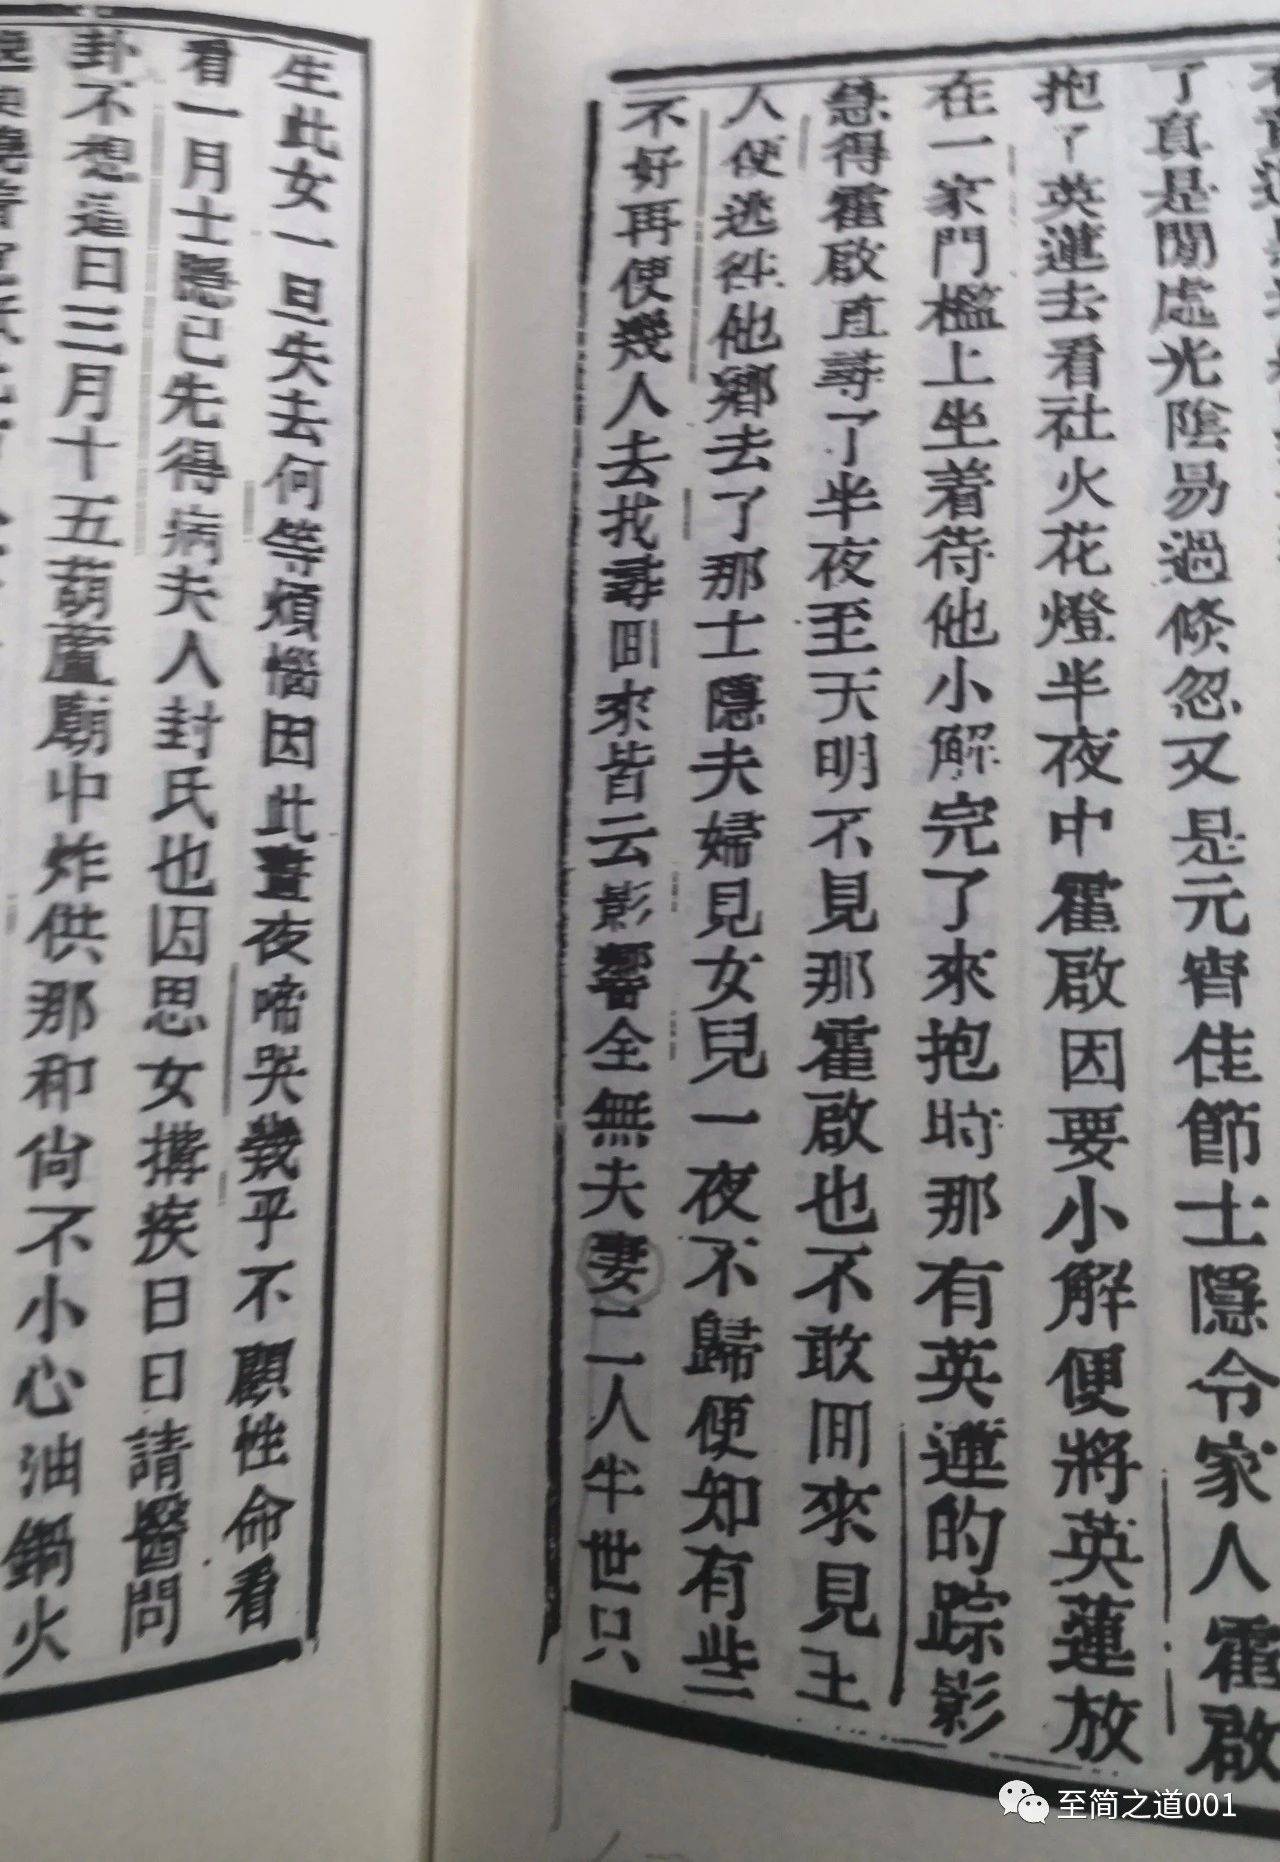 了真是閒處光陰易過倐忽又是元宵佳節士隱令家人霍啟
抱了英蓮去看社火花燈半夜中霍啟因要小解便將英蓮放
在一家門檻上坐着待他小解完了來抱時那有英蓮的踪影
急得霍啟直尋了半夜至天明不見那霍啟也不敢回來見主
人便逃往他鄉去了那士隱夫婦見女兒一夜不歸便知有些
不好再使幾人去找尋回來皆云影響全無夫妻二人半世只
生此女一旦失去何等煩惱因此晝夜啼哭幾乎不顧性命看
看一月士隱已先得病夫人封氏也因思女搆疾日日請醫問
卦不想這日三月十五葫蘆廟中炸供那和尚不小心油鍋火
至简之道001